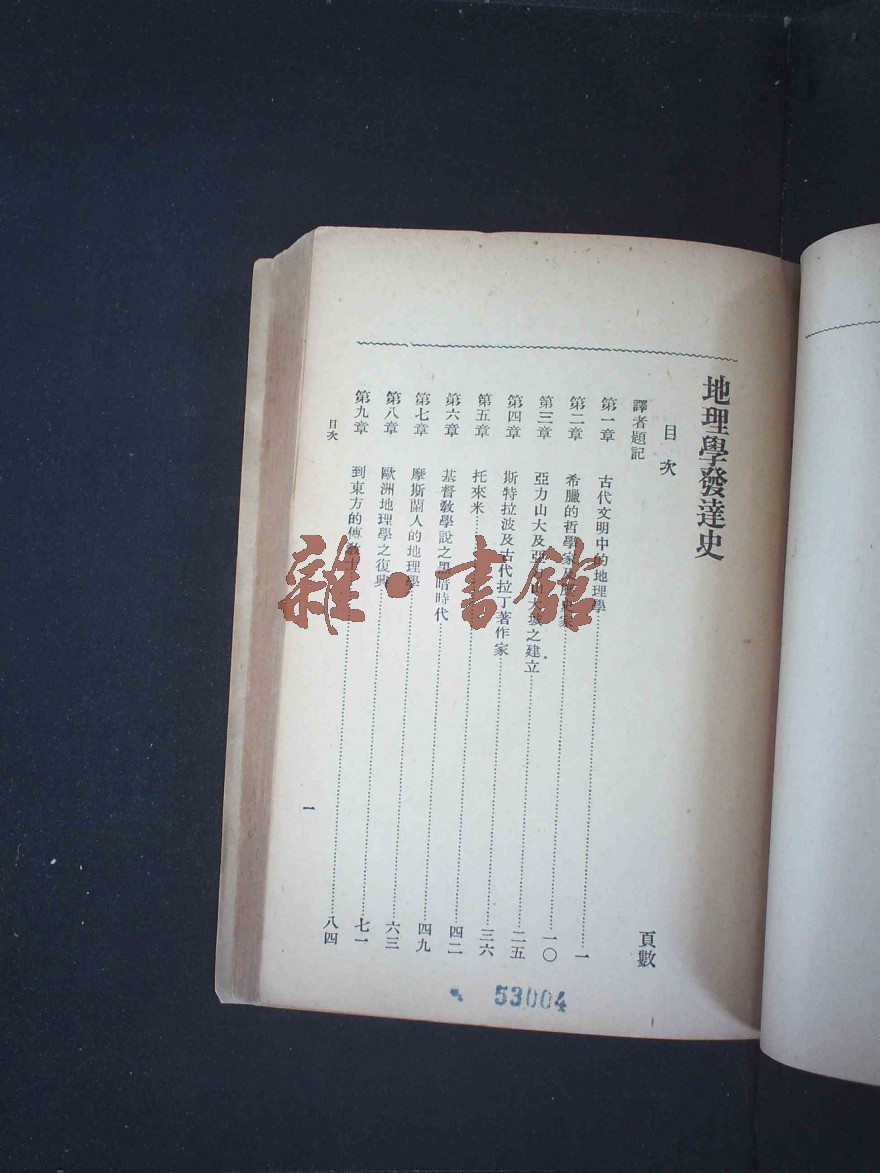 地理學發達史
目次
頁數
譯者題記
第一章 古代文明中的地理學……一
第二章 希臘的哲學家及歷史家……一〇
第三章 亞力山大及亞力山大城之建立……二五
第四章 斯特拉波及古代拉丁著作家……三六
第五章 托來米……四二
第六章 基督教學說之黑暗時代……四九
第七章 摩斯蘭人的地理學……六三
第八章 歐洲地理學之復興……七一
第九章 到東方的傳教士……八四
目次
一
53004
雜·書館